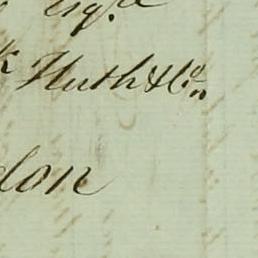 Esq.re
k Huth & Co.
don